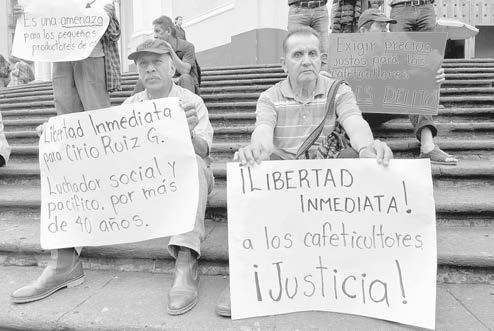 Es una amenaza
para los pequeños
productores de ca
Exigir precios
justos para los
cafeticultores
ES DELITO
Libertad Inmediata
para Cirio Ruiz G.
Luchador social y
pacífico, por más
de 40 años.
¡LIBERTAD
INMEDIATA!
a los cafeticultores
¡Justicia!